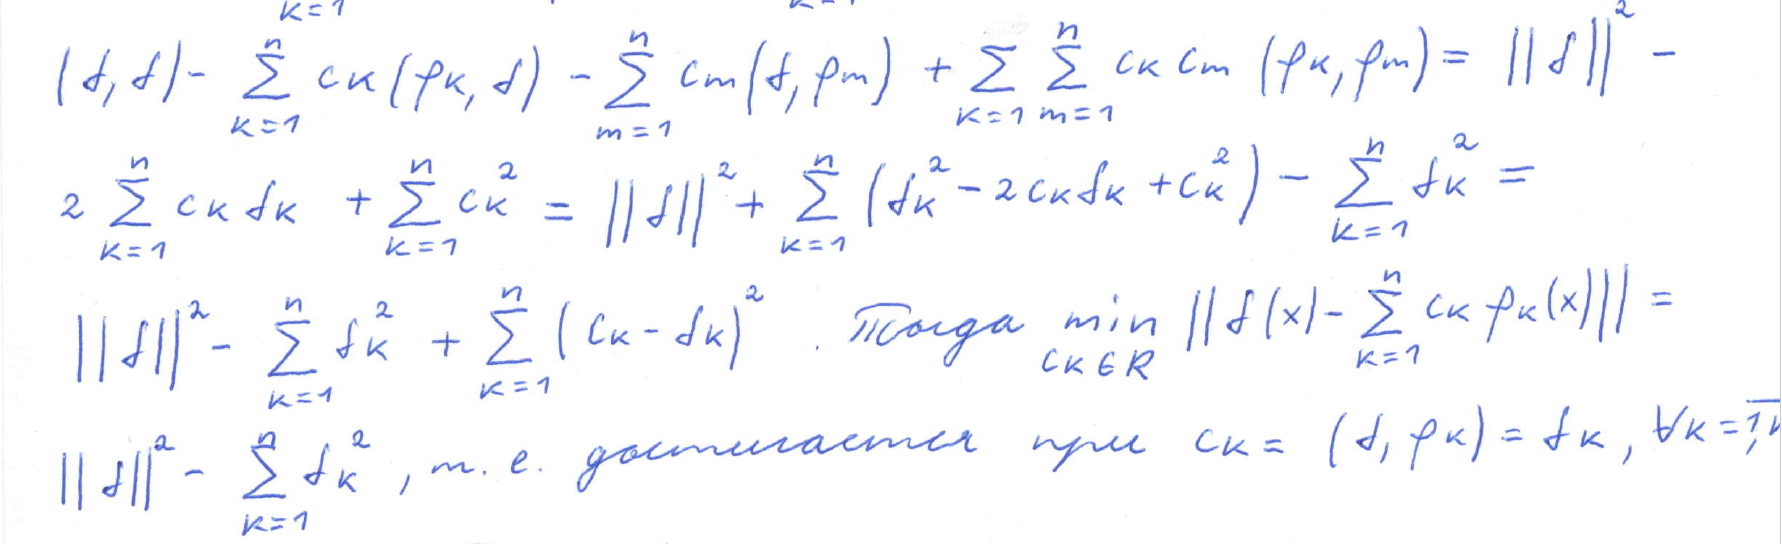 k=1 k=1
(f,f)- ∑_{k=1}^{n} c_k(φ_k, f) - ∑_{m=1}^{n} c_m(f, φ_m) + ∑_{k=1} ∑_{m=1}^{n} c_k c_m (φ_k, φ_m) = ||f||² -
2 ∑_{k=1}^{n} c_k f_k + ∑_{k=1}^{n} c_k² = ||f||² + ∑_{k=1}^{n} (f_k² - 2 c_k f_k + c_k²) - ∑_{k=1}^{n} f_k² =
||f||² - ∑_{k=1}^{n} f_k² + ∑_{k=1}^{n} (c_k - f_k)². Тогда min_{c_k∈R} ||f(x) - ∑_{k=1}^{n} c_k φ_k(x)|| =
||f||² - ∑_{k=1}^{n} f_k², т. е. достигается при c_k = (f, φ_k) = f_k, ∀k = 1,n